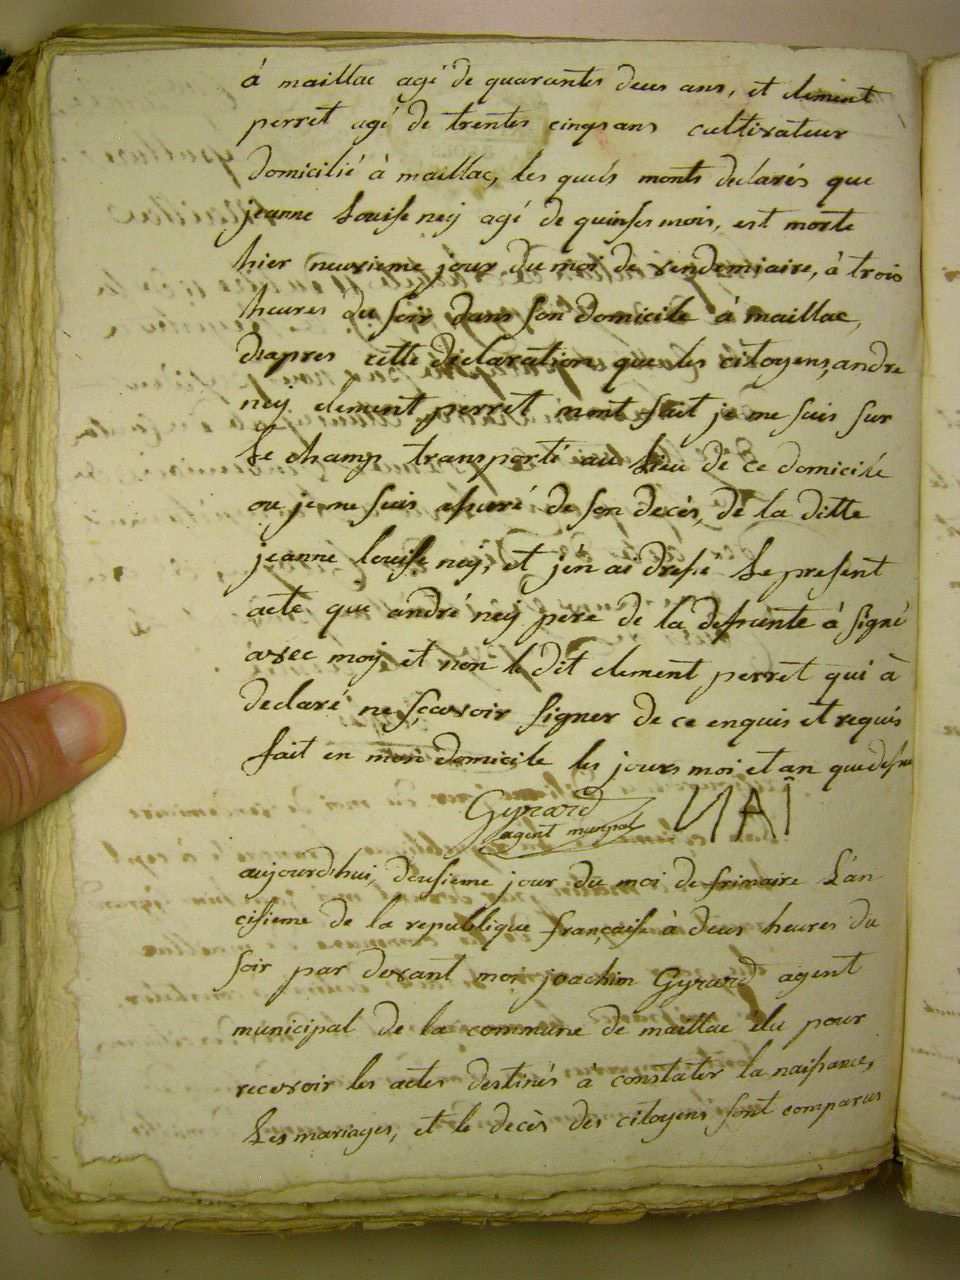 à maillac agé de quarantes deux ans, et clement
perret agé de trentes cinqs ans cultivateur
domicilié à maillac, les quels monts declarés que
jeanne Louise neÿ agé de quinses mois, est morte
hier neuvieme jour du moi de vendemiaire, à trois
heures du soir dans son domicile à maillac,
d'apres cette declaration que les citoyens, andré
neÿ clement perret mont fait je me suis sur
Le champ transporté au Lieu de ce domicile
ou je me suis assuré de son decès, de la ditte
jeanne louise neÿ, et j'en ai dressé Le present
acte que andré neÿ pere de la defunte à signé
avec moÿ et non le dit clement perret qui à
declaré ne sçavoir signer de ce enquis et requis
fait en mon domicile les jours moi et an que dessus
Gyrard NAÎ
agent municipal
aujourd'hui, deusieme jour du moi de frimaire L'an
cisieme de la republique française à deux heures du
soir par devant moi joachim Gyrard agent
municipal de la commune de maillac élu pour
recevoir les actes destinés à constater la naissance,
Les mariages, et le decès des citoyens sont comparus